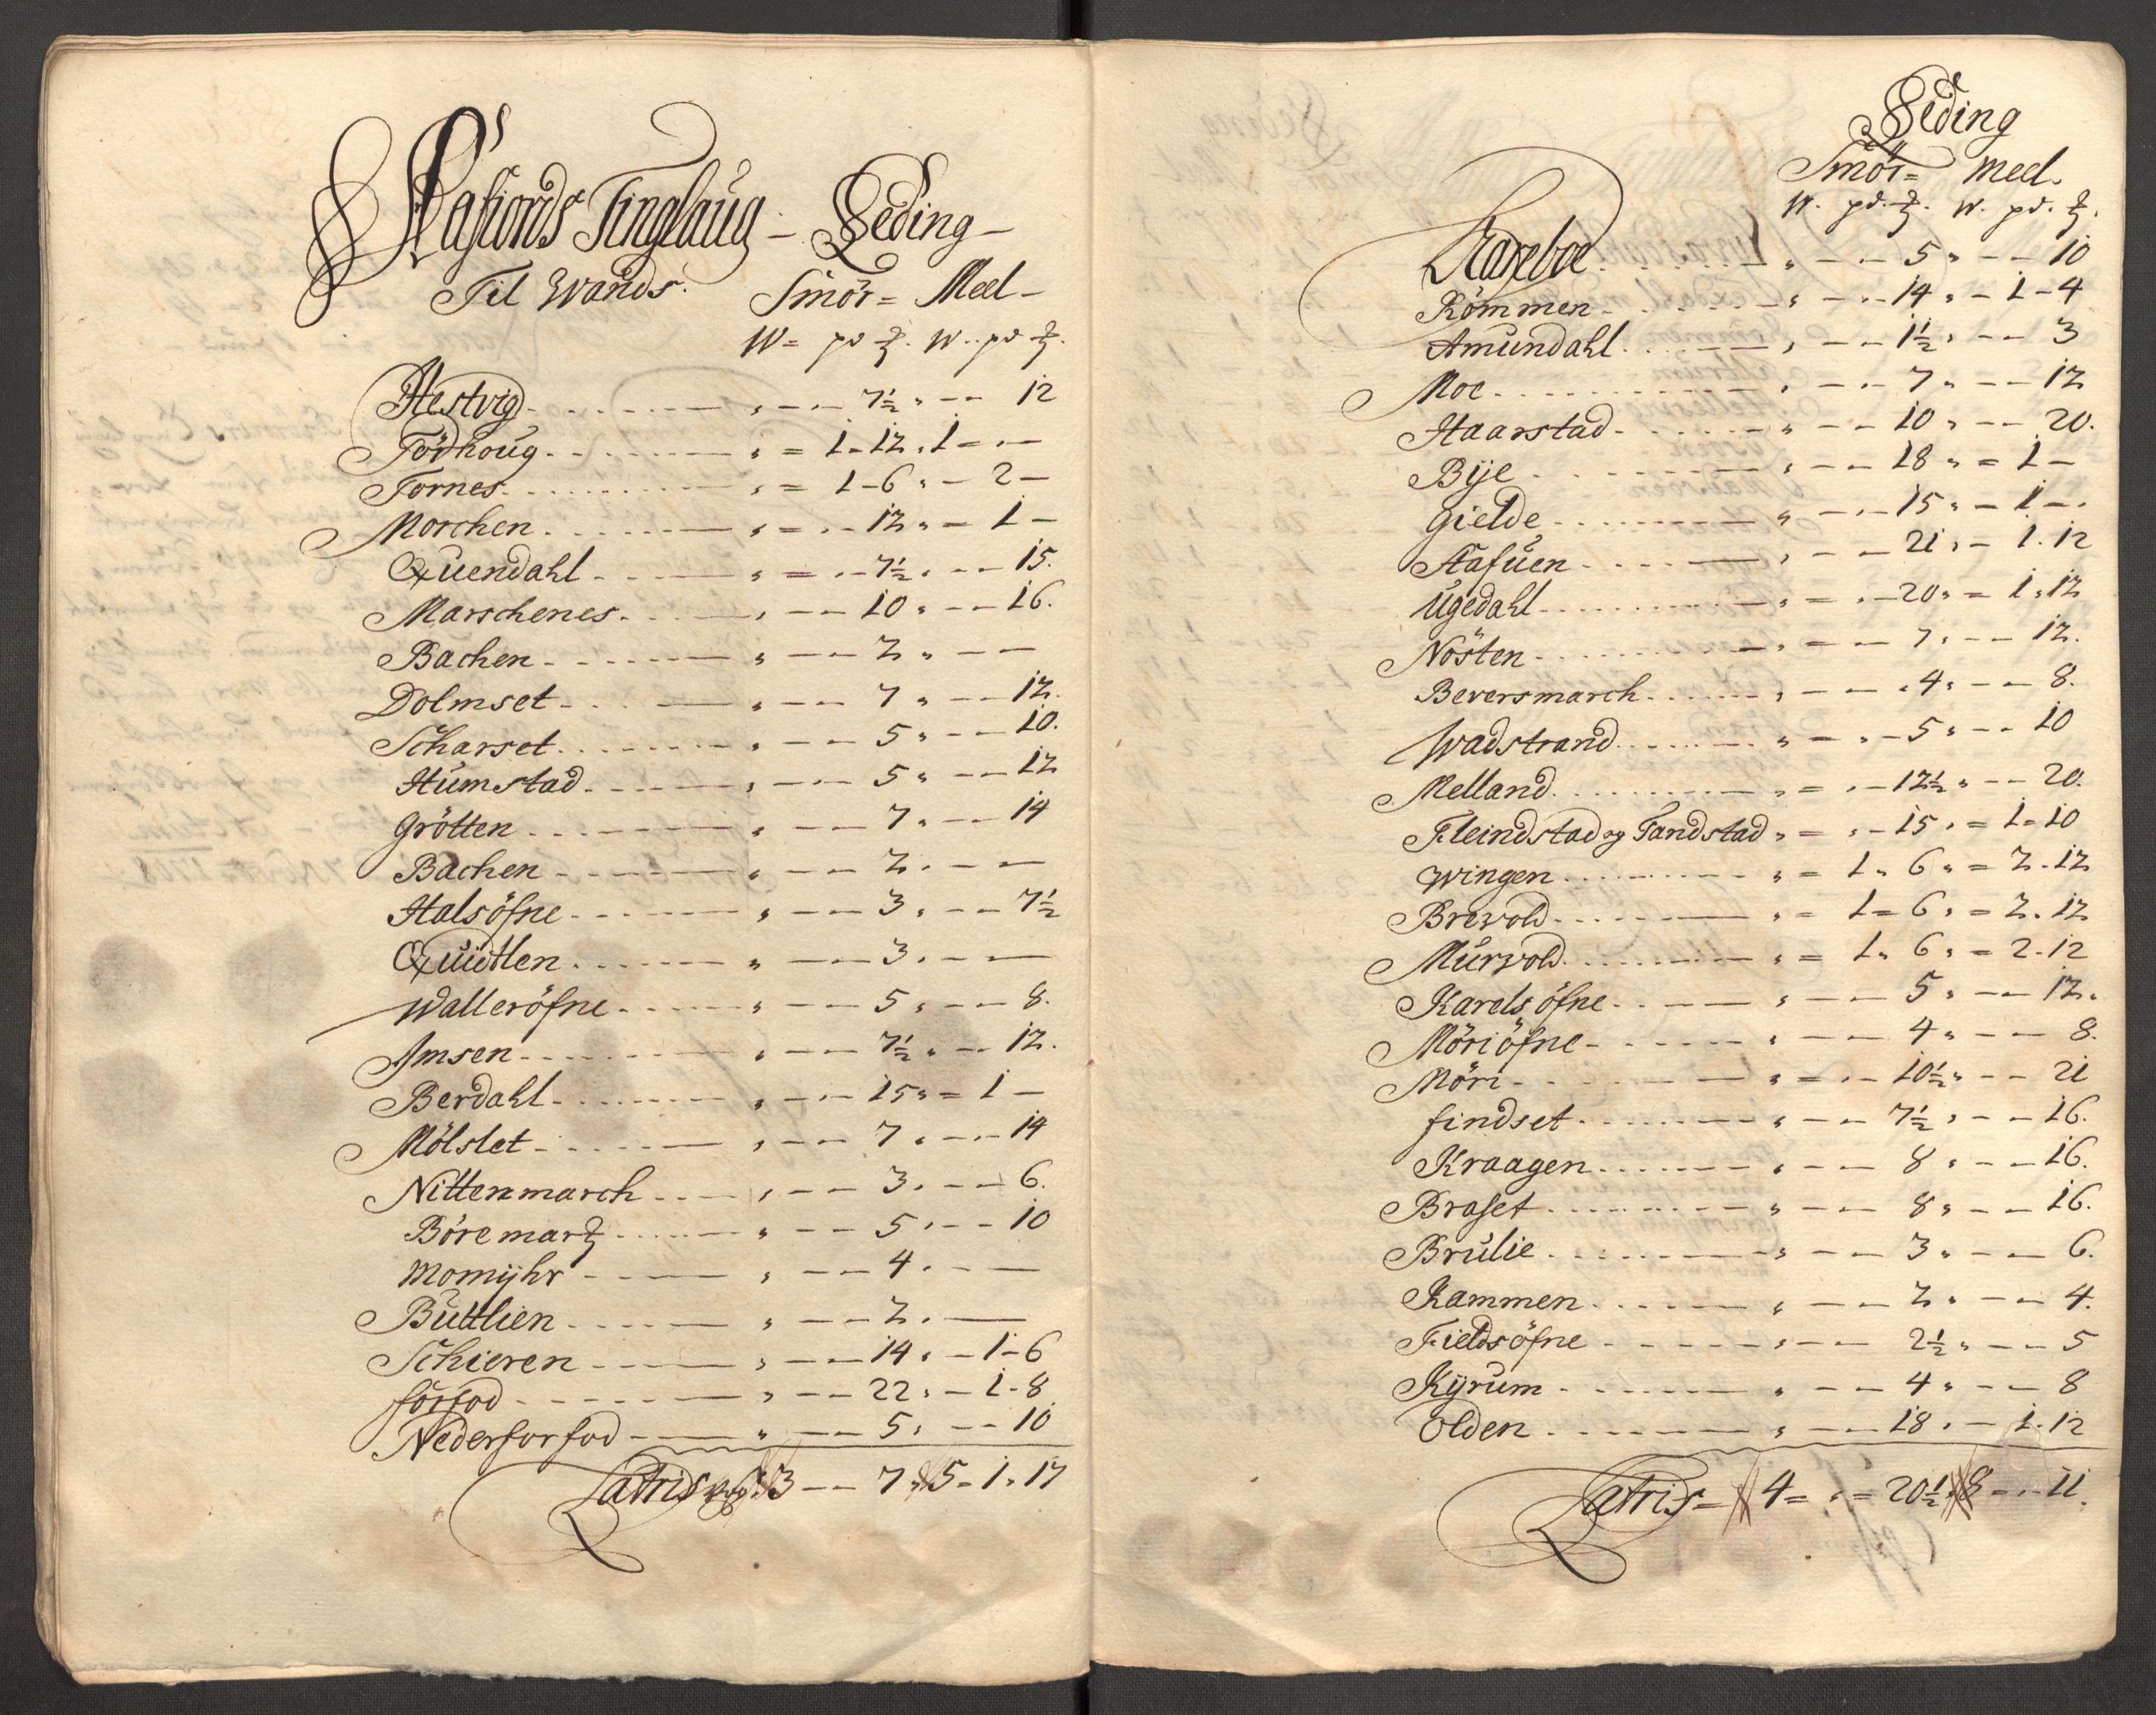 Nafiords Tinglaug – Leding –
Til Wands. Smör = Meel –
W = pd ℔. W.. pd ℔.
Hestvig - - - „ – – 7½ „ – – 12
Födhoug - - - „ = 1 – 12 „ 1 – „ –
Fornes - - - „ = 1 – 6 „ – 2 –
Morchen - - - „ = „ – 12 „ – 1 –
Quendahl - - - „ = „ – 7½ „ – – 15.
Marschenes - - - „ – – 10 „ – – 16.
Bachen - - - „ – – 2 „ – –
Dolmset - - - „ – – 7 „ – – 12.
Scharset - - - „ – – 5 „ – – 10.
Humstad - - - „ – – 5 „ – – 12
Grötten - - - „ – – 7 „ – – 14
Bachen - - - „ – – 2 „ – –
Halsöfne - - - „ – – 3 „ – – 7½
Quidtlen - - - „ – – 3 „ – –
Walleröfne - - - „ – – 5 „ – – 8.
Imsen - - - „ – – 7½ „ – – 12.
Berdahl - - - „ – – 15 „ = 1 –
Mölslet - - - „ – – 7 „ – – 14
Nittenmarch - - - „ – – 3 „ – – 6.
Böremarch - - - „ – – 5 „ – – 10
Momyhr - - - „ – – 4 „ – –
Buttlien - - - „ – – 2 „ –
Schieren - - - „ – – 14 „ – 1 – 6
forfod - - - „ – – 22 „ – 1 – 8
Nederforfod - - - „ – – 5 „ – – 10
Latris 3 – – 7 „ 5 – 1 „ 17
Leding
Smör = meel.
W. pd. ℔. W. pd. ℔.
Kareboe - - - „ – – 5 „ – – 10
Römmen - - - „ – – 14 „ – 1 – 4
Amundahl - - - „ – – 1½ „ – – 3
Moe - - - „ – – 7 „ – – 12
Haarstad - - - „ – – 10 „ – – 20.
Bije - - - „ – – 18 „ = 1 –
Gielde - - - „ – – 15 „ – 1 – .
Hafuen - - - „ – – 21 „ – 1 . 12
Ugedahl - - - „ = „ – 20 „ = 1 „ 12
Nösten - - - „ = – 7 „ – – 12.
Beversmarch - - - „ – – 4 „ – – 8.
Wadstrand - - - „ – „ – 5 „ – – 10
Melland - - - „ = „ – 12½ „ – – 20.
Fleindstad og Tandstad „ = „ – 15 „ = 1 = 10
Wingen - - - „ = 1 „ 6 „ = 2 . 12
Brevold - - - „ = 1 = 6 „ = 2 . 12
Murvold - - - „ = 1 „ 6 „ = 2 . 12
Karelsöfne - - - „ – – 5 „ – – 12.
Möriöfne - - - „ – – 4 „ – – 8.
Möri - - - „ = „ – 10½ „ – – 21
findset - - - „ – – 7½ „ – – 16.
Kraagen - - - „ – – 8 „ – – 16.
Braset - - - „ – – 8 „ – – 16.
Brulie - - - „ – – 3 „ – – 6.
Kammen - - - „ – – 2 „ – – 4.
Fieldsöfne - - - „ – – 2½ „ – – 5
Kyrum - - - „ – – 4 „ – – 8
Olden - - - „ – – 18 „ – 1 . 12
Latris = 4 = „ = 20½ 8 – „ 11.